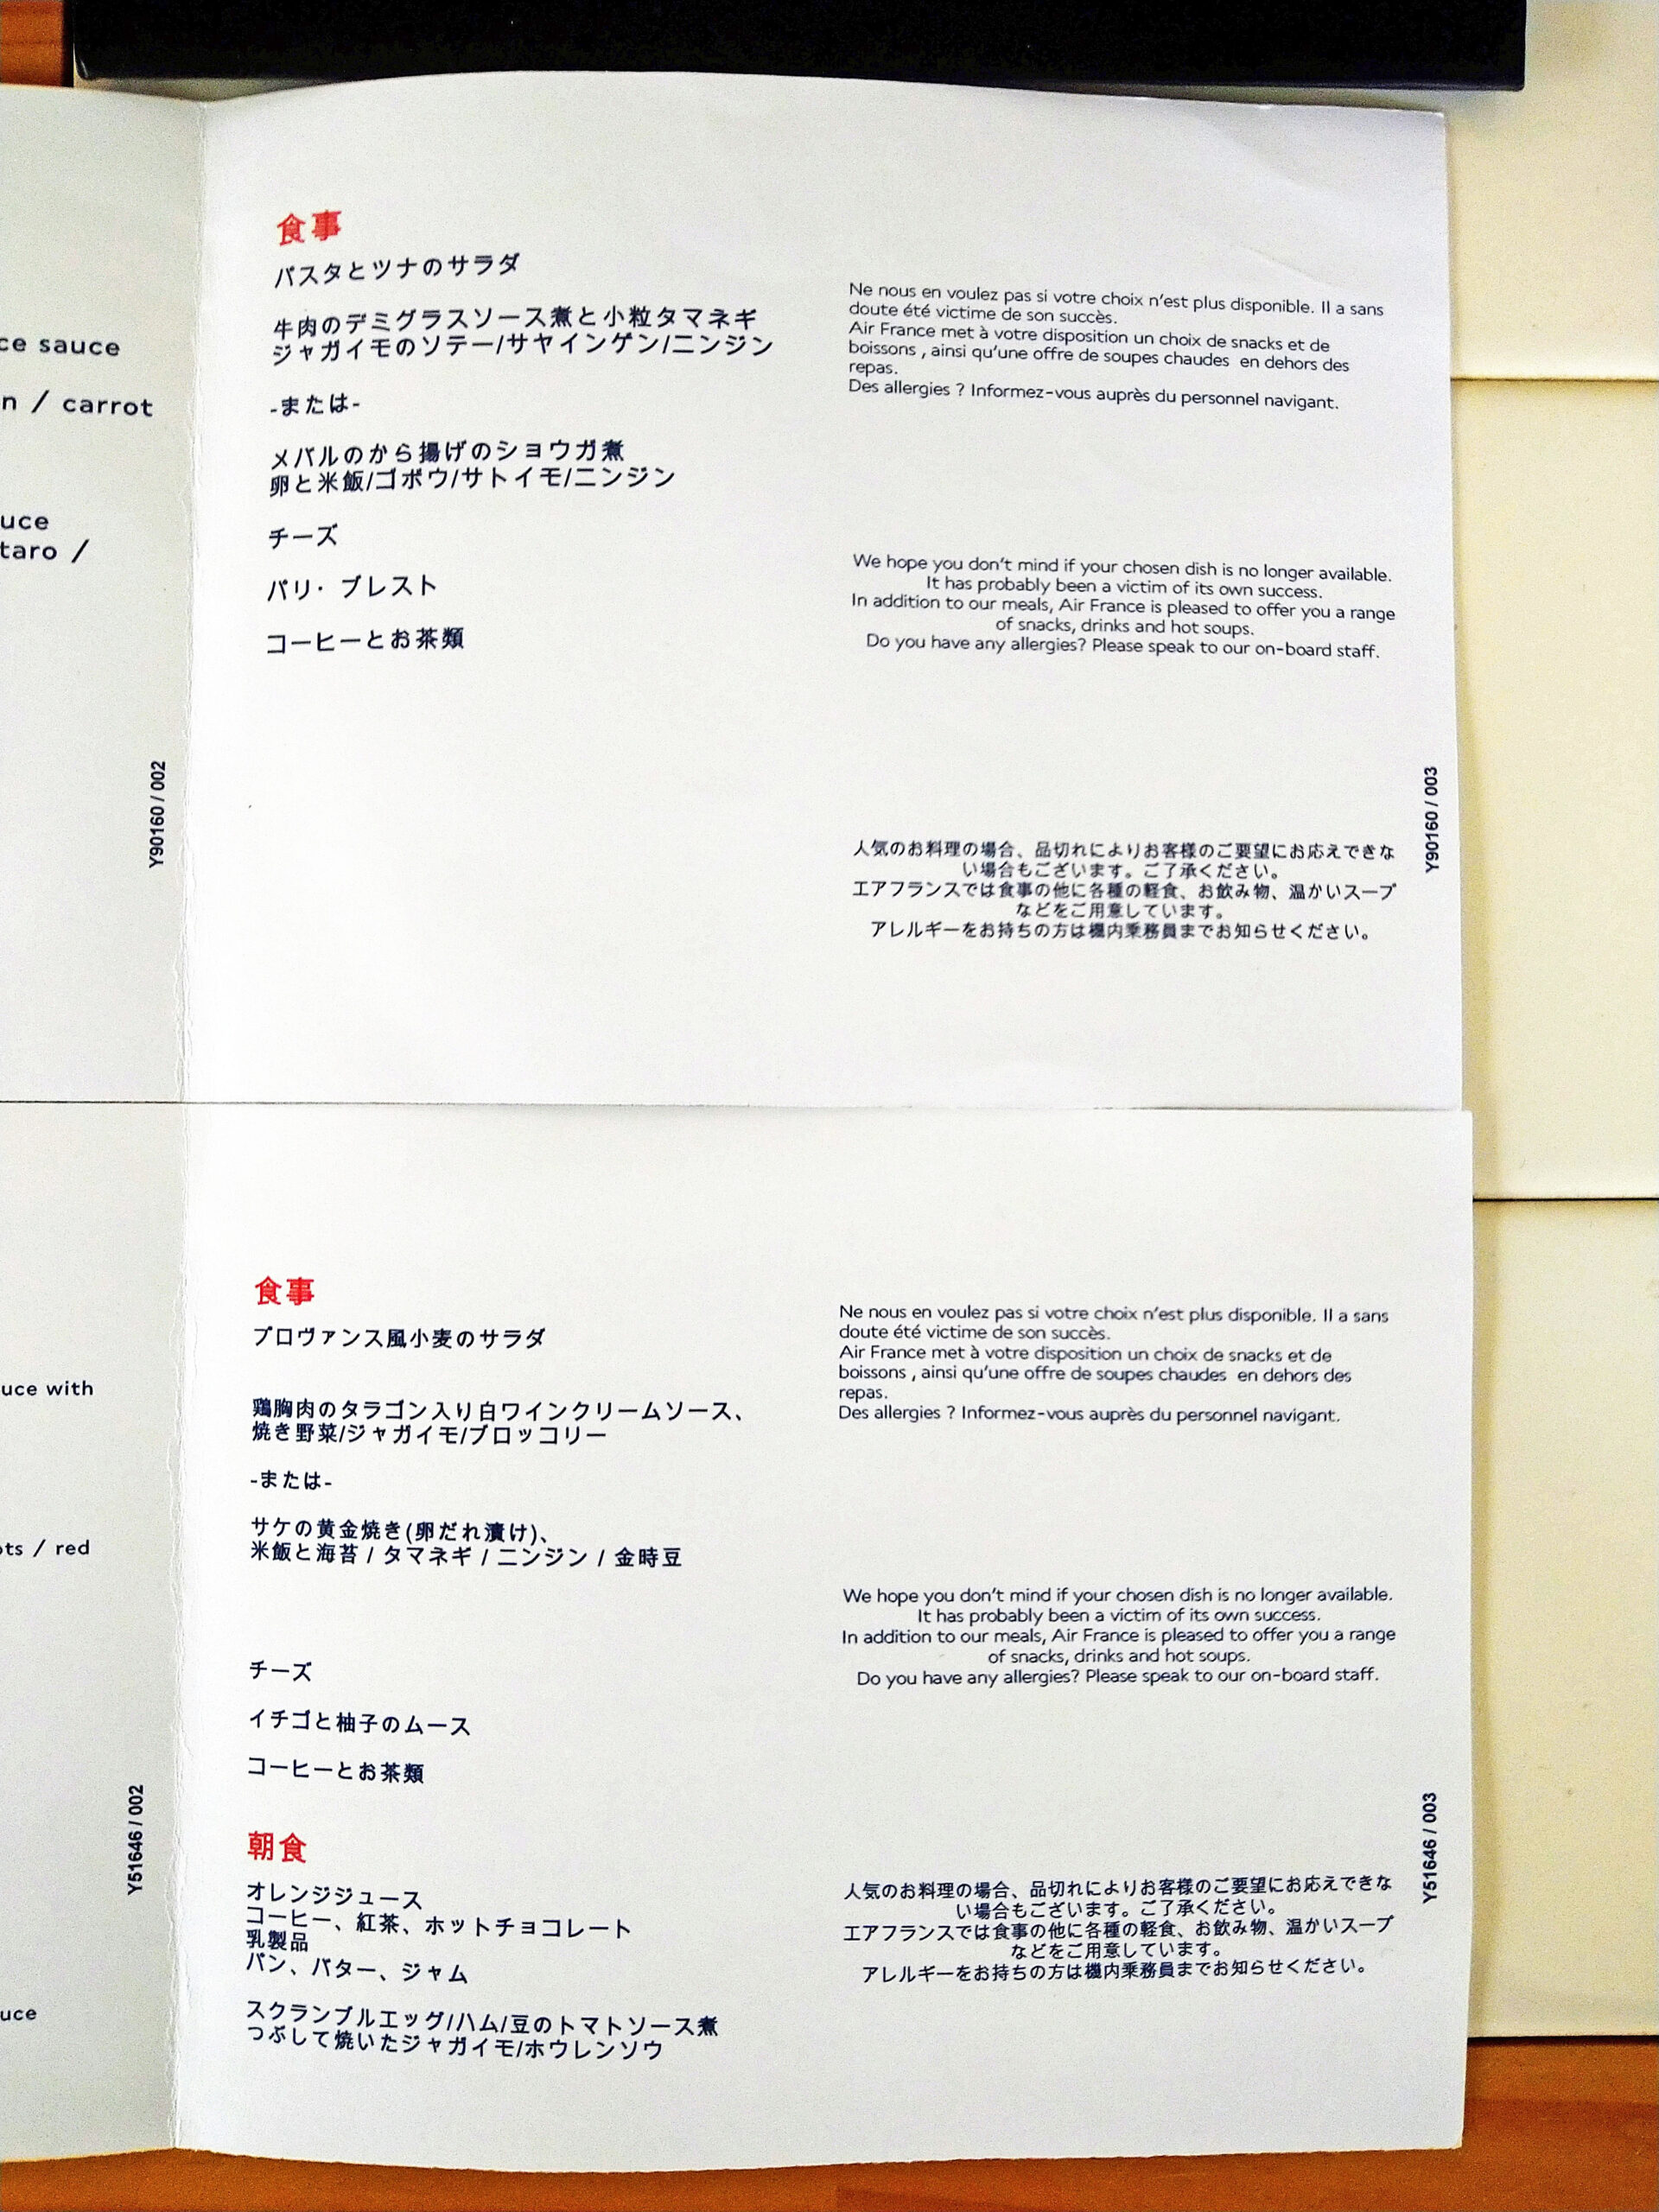 ce sauce
n / carrot
uce
taro /
Y90160 / 002
食事
パスタとツナのサラダ
牛肉のデミグラスソース煮と小粒タマネギ
ジャガイモのソテー/サヤインゲン/ニンジン
-または-
メバルのから揚げのショウガ煮
卵と米飯/ゴボウ/サトイモ/ニンジン
チーズ
パリ・ブレスト
コーヒーとお茶類
Ne nous en voulez pas si votre choix n'est plus disponible. Il a sans
doute été victime de son succès.
Air France met à votre disposition un choix de snacks et de
boissons , ainsi qu'une offre de soupes chaudes en dehors des
repas.
Des allergies ? Informez-vous auprès du personnel navigant.
We hope you don't mind if your chosen dish is no longer available.
It has probably been a victim of its own success.
In addition to our meals, Air France is pleased to offer you a range
of snacks, drinks and hot soups.
Do you have any allergies? Please speak to our on-board staff.
人気のお料理の場合、品切れによりお客様のご要望にお応えできな
い場合もございます。ご了承ください。
エアフランスでは食事の他に各種の軽食、お飲み物、温かいスープ
などをご用意しています。
アレルギーをお持ちの方は機内乗務員までお知らせください。
Y90160 / 003
uce with
ots / red
uce
Y51646 / 002
食事
プロヴァンス風小麦のサラダ
鶏胸肉のタラゴン入り白ワインクリームソース、
焼き野菜/ジャガイモ/ブロッコリー
-または-
サケの黄金焼き(卵だれ漬け)、
米飯と海苔 / タマネギ / ニンジン / 金時豆
チーズ
イチゴと柚子のムース
コーヒーとお茶類
朝食
オレンジジュース
コーヒー、紅茶、ホットチョコレート
乳製品
パン、バター、ジャム
スクランブルエッグ/ハム/豆のトマトソース煮
つぶして焼いたジャガイモ/ホウレンソウ
Ne nous en voulez pas si votre choix n'est plus disponible. Il a sans
doute été victime de son succès.
Air France met à votre disposition un choix de snacks et de
boissons , ainsi qu'une offre de soupes chaudes en dehors des
repas.
Des allergies ? Informez-vous auprès du personnel navigant.
We hope you don't mind if your chosen dish is no longer available.
It has probably been a victim of its own success.
In addition to our meals, Air France is pleased to offer you a range
of snacks, drinks and hot soups.
Do you have any allergies? Please speak to our on-board staff.
人気のお料理の場合、品切れによりお客様のご要望にお応えできな
い場合もございます。ご了承ください。
エアフランスでは食事の他に各種の軽食、お飲み物、温かいスープ
などをご用意しています。
アレルギーをお持ちの方は機内乗務員までお知らせください。
Y51646 / 003